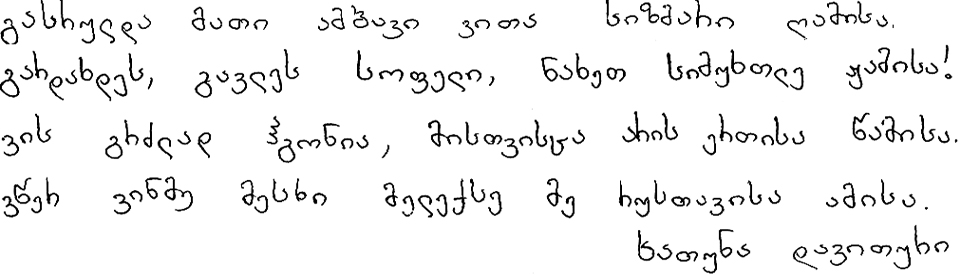 გასრულდა მათი ამბავი ვითა სიზმარი ღამისა.
გარდახდეს, გავლეს სოფელი, ნახეთ სიმუხთლე ჟამისა!
ვის გრძლად ჰგონია, მისთვისცა არის ერთისა წამისა.
ვწერ ვინმე მესხი მელექსე მე რუსთავისა ამისა.
ხათუნა დავითური